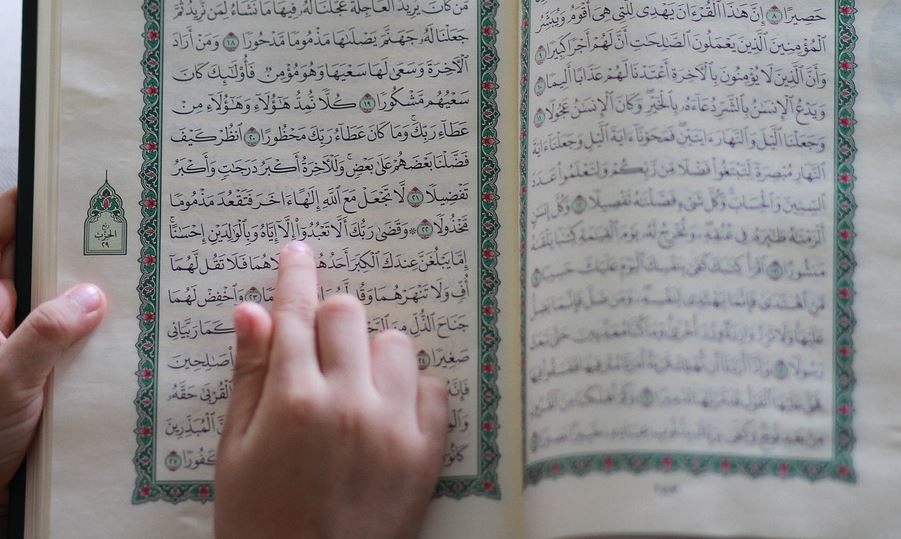 حَصِيرًا ٨ إِنَّ هَٰذَا ٱلْقُرْءَانَ يَهْدِى لِلَّتِى هِىَ أَقْوَمُ وَيُبَشِّرُ
ٱلْمُؤْمِنِينَ ٱلَّذِينَ يَعْمَلُونَ ٱلصَّٰلِحَٰتِ أَنَّ لَهُمْ أَجْرًا كَبِيرًا ٩
وَأَنَّ ٱلَّذِينَ لَا يُؤْمِنُونَ بِٱلْأَخِرَةِ أَعْتَدْنَا لَهُمْ عَذَابًا أَلِيمًا ١٠
وَيَدْعُ ٱلْإِنسَٰنُ بِٱلشَّرِّ دُعَآءَهُۥ بِٱلْخَيْرِ وَكَانَ ٱلْإِنسَٰنُ عَجُولًا ١١
وَجَعَلْنَا ٱلَّيْلَ وَٱلنَّهَارَ ءَايَتَيْنِ فَمَحَوْنَآ ءَايَةَ ٱلَّيْلِ وَجَعَلْنَآ ءَايَةَ
ٱلنَّهَارِ مُبْصِرَةً لِّتَبْتَغُوا۟ فَضْلًا مِّن رَّبِّكُمْ وَلِتَعْلَمُوا۟ عَدَدَ
ٱلسِّنِينَ وَٱلْحِسَابَ وَكُلَّ شَىْءٍ فَصَّلْنَٰهُ تَفْصِيلًا ١٢ وَكُلَّ إِنسَٰنٍ
أَلْزَمْنَٰهُ طَٰٓئِرَهُۥ فِى عُنُقِهِۦ وَنُخْرِجُ لَهُۥ يَوْمَ ٱلْقِيَٰمَةِ كِتَٰبًا يَلْقَىٰهُ
مَنشُورًا ١٣ ٱقْرَأْ كِتَٰبَكَ كَفَىٰ بِنَفْسِكَ ٱلْيَوْمَ عَلَيْكَ حَسِيبًا ١٤
مَّنِ ٱهْتَدَىٰ فَإِنَّمَا يَهْتَدِى لِنَفْسِهِۦ وَمَن ضَلَّ فَإِنَّمَا يَضِلُّ
عَلَيْهَا وَلَا تَزِرُ وَازِرَةٌ وِزْرَ أُخْرَىٰ وَمَا كُنَّا مُعَذِّبِينَ حَتَّىٰ نَبْعَثَ
رَسُولًا ١٥ وَإِذَآ أَرَدْنَآ أَن نُّهْلِكَ قَرْيَةً أَمَرْنَا مُتْرَفِيهَا فَفَسَقُوا۟ فِيهَا
فَحَقَّ عَلَيْهَا ٱلْقَوْلُ فَدَمَّرْنَٰهَا تَدْمِيرًا ١٦ وَكَمْ أَهْلَكْنَا مِنَ ٱلْقُرُونِ
مِنۢ بَعْدِ نُوحٍ وَكَفَىٰ بِرَبِّكَ بِذُنُوبِ عِبَادِهِۦ خَبِيرًۢا بَصِيرًا ١٧
٢٨٣
مَّن كَانَ يُرِيدُ ٱلْعَاجِلَةَ عَجَّلْنَا لَهُۥ فِيهَا مَا نَشَآءُ لِمَن نُّرِيدُ ثُمَّ
جَعَلْنَا لَهُۥ جَهَنَّمَ يَصْلَىٰهَا مَذْمُومًا مَّدْحُورًا ١٨ وَمَنْ أَرَادَ
ٱلْأَخِرَةَ وَسَعَىٰ لَهَا سَعْيَهَا وَهُوَ مُؤْمِنٌ فَأُو۟لَٰٓئِكَ كَانَ
سَعْيُهُم مَّشْكُورًا ١٩ كُلًّا نُّمِدُّ هَٰٓؤُلَآءِ وَهَٰٓؤُلَآءِ مِنْ
عَطَآءِ رَبِّكَ وَمَا كَانَ عَطَآءُ رَبِّكَ مَحْظُورًا ٢٠ ٱنظُرْ كَيْفَ
فَضَّلْنَا بَعْضَهُمْ عَلَىٰ بَعْضٍ وَلَلْأَخِرَةُ أَكْبَرُ دَرَجَٰتٍ وَأَكْبَرُ
تَفْضِيلًا ٢١ لَّا تَجْعَلْ مَعَ ٱللَّهِ إِلَٰهًا ءَاخَرَ فَتَقْعُدَ مَذْمُومًا
مَّخْذُولًا ٢٢ ۞ وَقَضَىٰ رَبُّكَ أَلَّا تَعْبُدُوٓا۟ إِلَّآ إِيَّاهُ وَبِٱلْوَٰلِدَيْنِ إِحْسَٰنًا
إِمَّا يَبْلُغَنَّ عِندَكَ ٱلْكِبَرَ أَحَدُهُمَآ فَلَا تَقُل لَّهُمَآ
أُفٍّ وَلَا تَنْهَرْهُمَا وَقُل ٢٣ وَٱخْفِضْ لَهُمَا
جَنَاحَ ٱلذُّلِّ مِنَ كَمَا رَبَّيَانِى
صَغِيرًا ٢٤ صَٰلِحِينَ
فَإِنَّهُۥ ٱلْقُرْبَىٰ حَقَّهُۥ
ٱلْمُبَذِّرِينَ
كَانُوٓا۟ كَفُورًا ٢٧
ربع
الحزب
٢٩